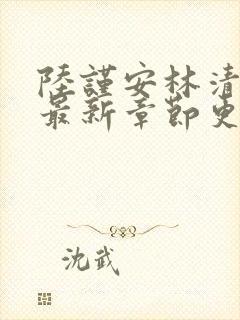 陸謹安林清
最新章節更
沈武